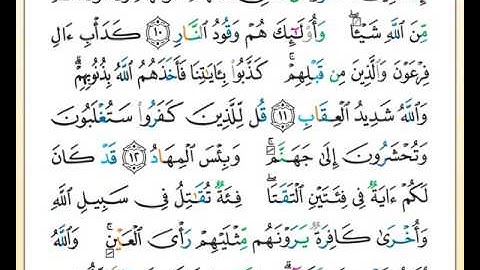 مِّنَ ٱللَّهِ شَيْـًٔا ۖ وَأُو۟لَـٰٓئِكَ هُمْ وَقُودُ ٱلنَّارِ ﴿١٠﴾ كَدَأْبِ ءَالِ
فِرْعَوْنَ وَٱلَّذِينَ مِن قَبْلِهِمْ ۚ كَذَّبُوا۟ بِـَٔايَـٰتِنَا فَأَخَذَهُمُ ٱللَّهُ بِذُنُوبِهِمْ ۗ
وَٱللَّهُ شَدِيدُ ٱلْعِقَابِ ﴿١١﴾ قُل لِّلَّذِينَ كَفَرُوا۟ سَتُغْلَبُونَ
وَتُحْشَرُونَ إِلَىٰ جَهَنَّمَ ۚ وَبِئْسَ ٱلْمِهَادُ ﴿١٢﴾ قَدْ كَانَ
لَكُمْ ءَايَةٌ فِى فِئَتَيْنِ ٱلْتَقَتَا ۖ فِئَةٌ تُقَـٰتِلُ فِى سَبِيلِ ٱللَّهِ
وَأُخْرَىٰ كَافِرَةٌ يَرَوْنَهُم مِّثْلَيْهِمْ رَأْىَ ٱلْعَيْنِ ۚ وَٱللَّهُ